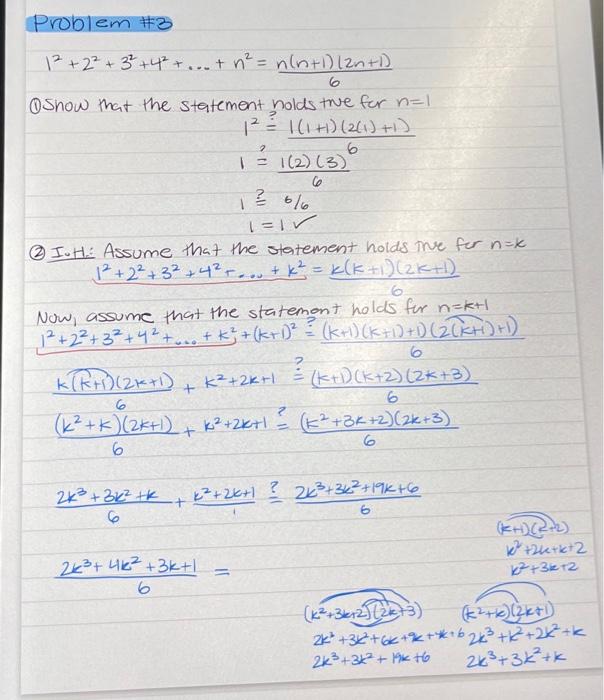 Problem #3
1² + 2² + 3² + 4² + ... + n² = n(n+1)(2n+1) / 6
① Show that the statement holds true for n=1
1² ≟ 1(1+1)(2(1)+1) / 6
1 ≟ 1(2)(3) / 6
1 ≟ 6/6
1 = 1 ✓
② I.H.: Assume that the statement holds true for n=k
1² + 2² + 3² + 4² + ... + k² = k(k+1)(2k+1) / 6
Now, assume that the statement holds for n=k+1
1² + 2² + 3² + 4² + ... + k² + (k+1)² ≟ (k+1)(k+1)+1)(2(k+1)+1) / 6
k(k+1)(2k+1) / 6 + k² + 2k+1 ≟ (k+1)(k+2)(2k+3) / 6
(k²+k)(2k+1) / 6 + k² + 2k+1 ≟ (k²+3k+2)(2k+3) / 6
2k³+3k²+k / 6 + k²+2k+1 / 1 ≟ 2k³+3k²+19k+6 / 6
(k+1)(k+2)
k²+2k+k+2
k²+3k+2
2k³+4k²+3k+1 / 6 =
(k²+3k+2)(2k+3) (k²+k)(2k+1)
2k³+3k²+6k+9k+4k+6 2k³+k²+2k²+k
2k³+3k²+19k+6 2k³+3k²+k